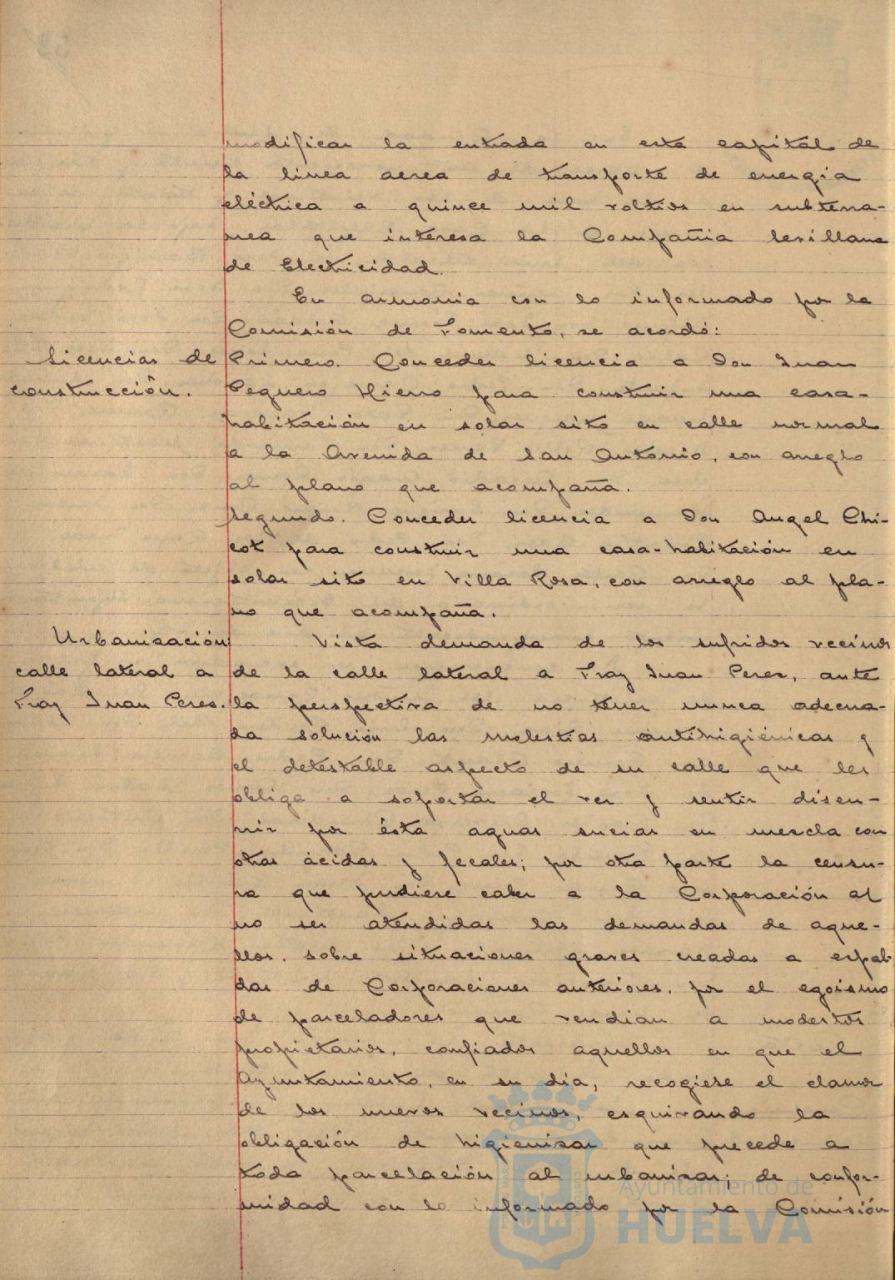 modificar la entrada en esta capital de
la linea aerea de transporte de energia
eléctrica a quince mil voltios en subterra-
nea que interesa la Compañia Sevillana
de Electricidad.
En armonia con lo informado por la
Comisión de Fomento, se acordó:
Licencias de
construcción.
Primero. Conceder licencia a Don Juan
Peguero Hierro para construir una casa-
habitación en solar sito en calle normal
a la Avenida de San Antonio, con arreglo
al plano que acompaña.
Segundo. Conceder licencia a Don Angel Chi-
cot para construir una casa-habitación en
solar sito en Villa Rosa, con arreglo al pla-
no que acompaña.
Urbanización
calle lateral a
Fray Juan Peres.
Vista demanda de los sufridos vecinos
de la calle lateral a Fray Juan Perez, ante
la perspectiva de no tener nunca adecua-
da solución las molestias antihigiénicas y
el detestable aspecto de su calle que les
obliga a soportar el ver y sentir discu-
rrir por ésta aguas sucias en mezcla con
otras ácidas y fecales; por otra parte la censu-
ra que pudiere caber a la Corporación al
no ser atendidas las demandas de aque-
llos, sobre situaciones graves creadas a espal-
das de Corporaciones anteriores, por el egoismo
de parceladores que vendian a modestos
propietarios, confiados aquellos en que el
Ayuntamiento, en su dia, recogiese el clamor
de los nuevos vecinos, esquivando la
obligación de higienizar que precede a
toda parcelación al urbanizar; de confor-
midad con lo informado por la Comisión
Ayuntamiento de
HUELVA